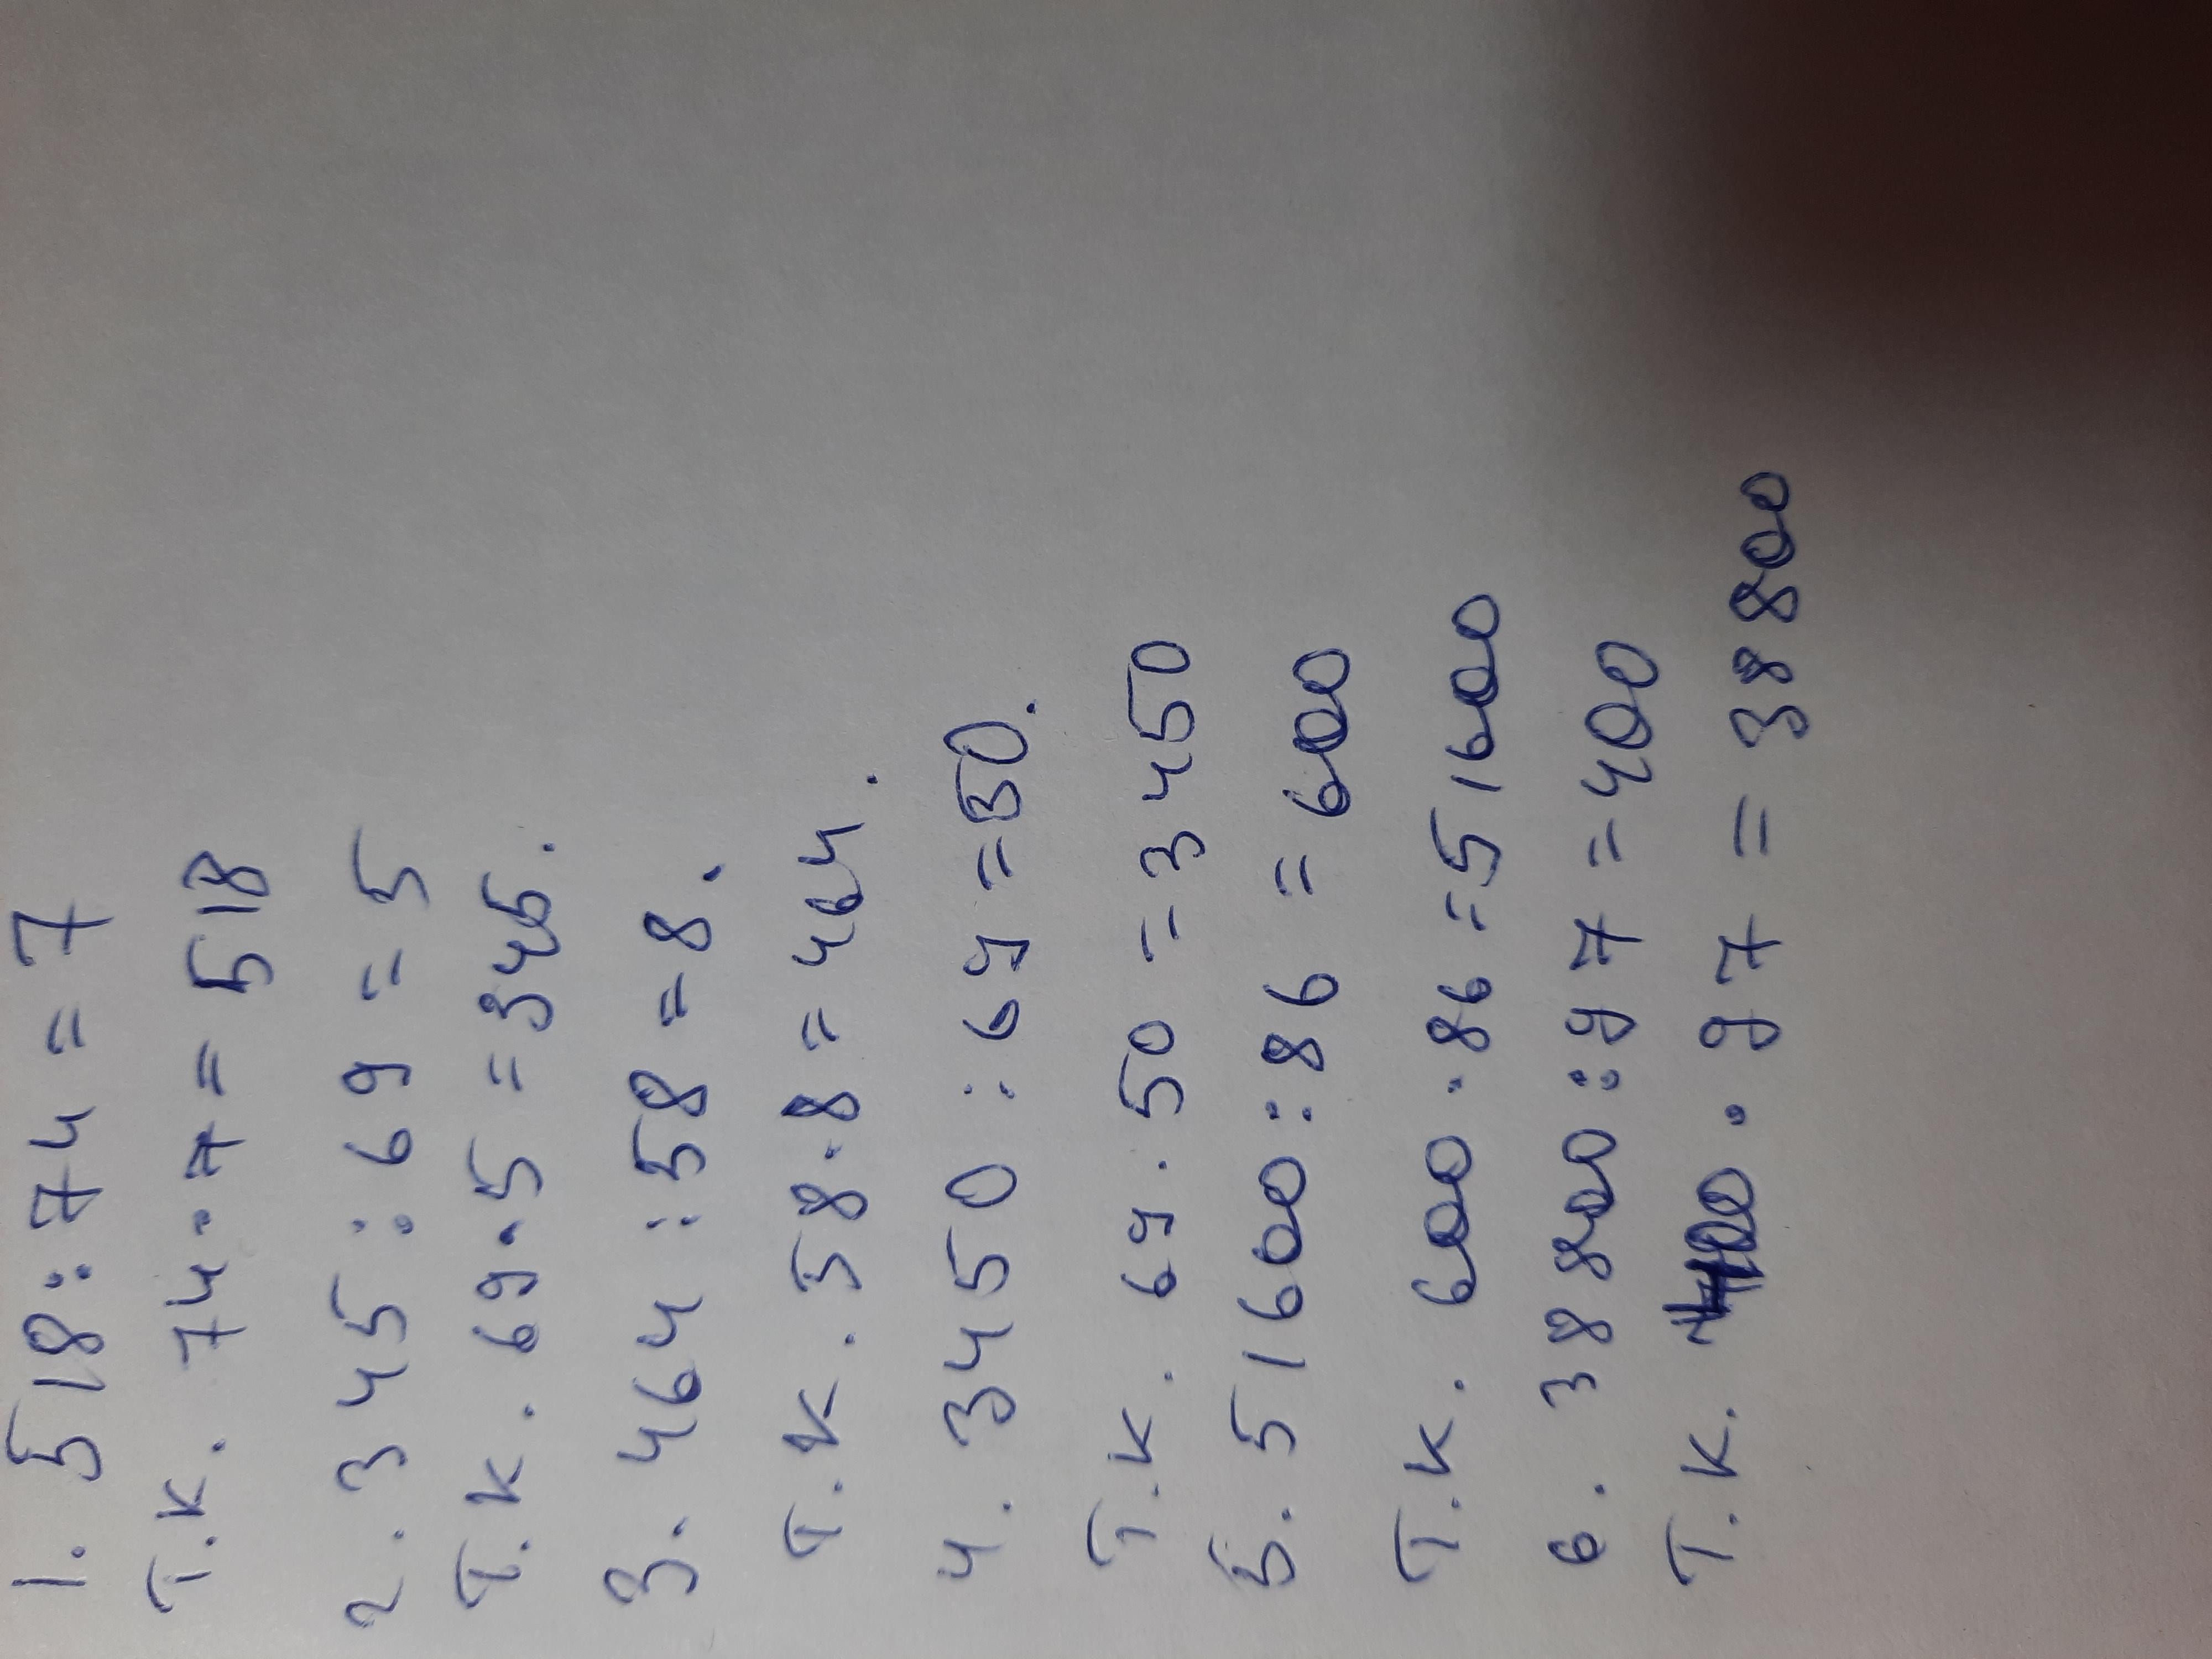 1. 518:74=7
Т.к. 74·7=518
2. 345:69=5
Т.к. 69·5=345.
3. 464:58=8.
Т.к. 58·8=464.
4. 3450:69=50.
Т.к. 69·50=3450
5. 51600:86=600
Т.к. 600·86=51600
6. 38800:97=400
Т.к. 400·97=38800